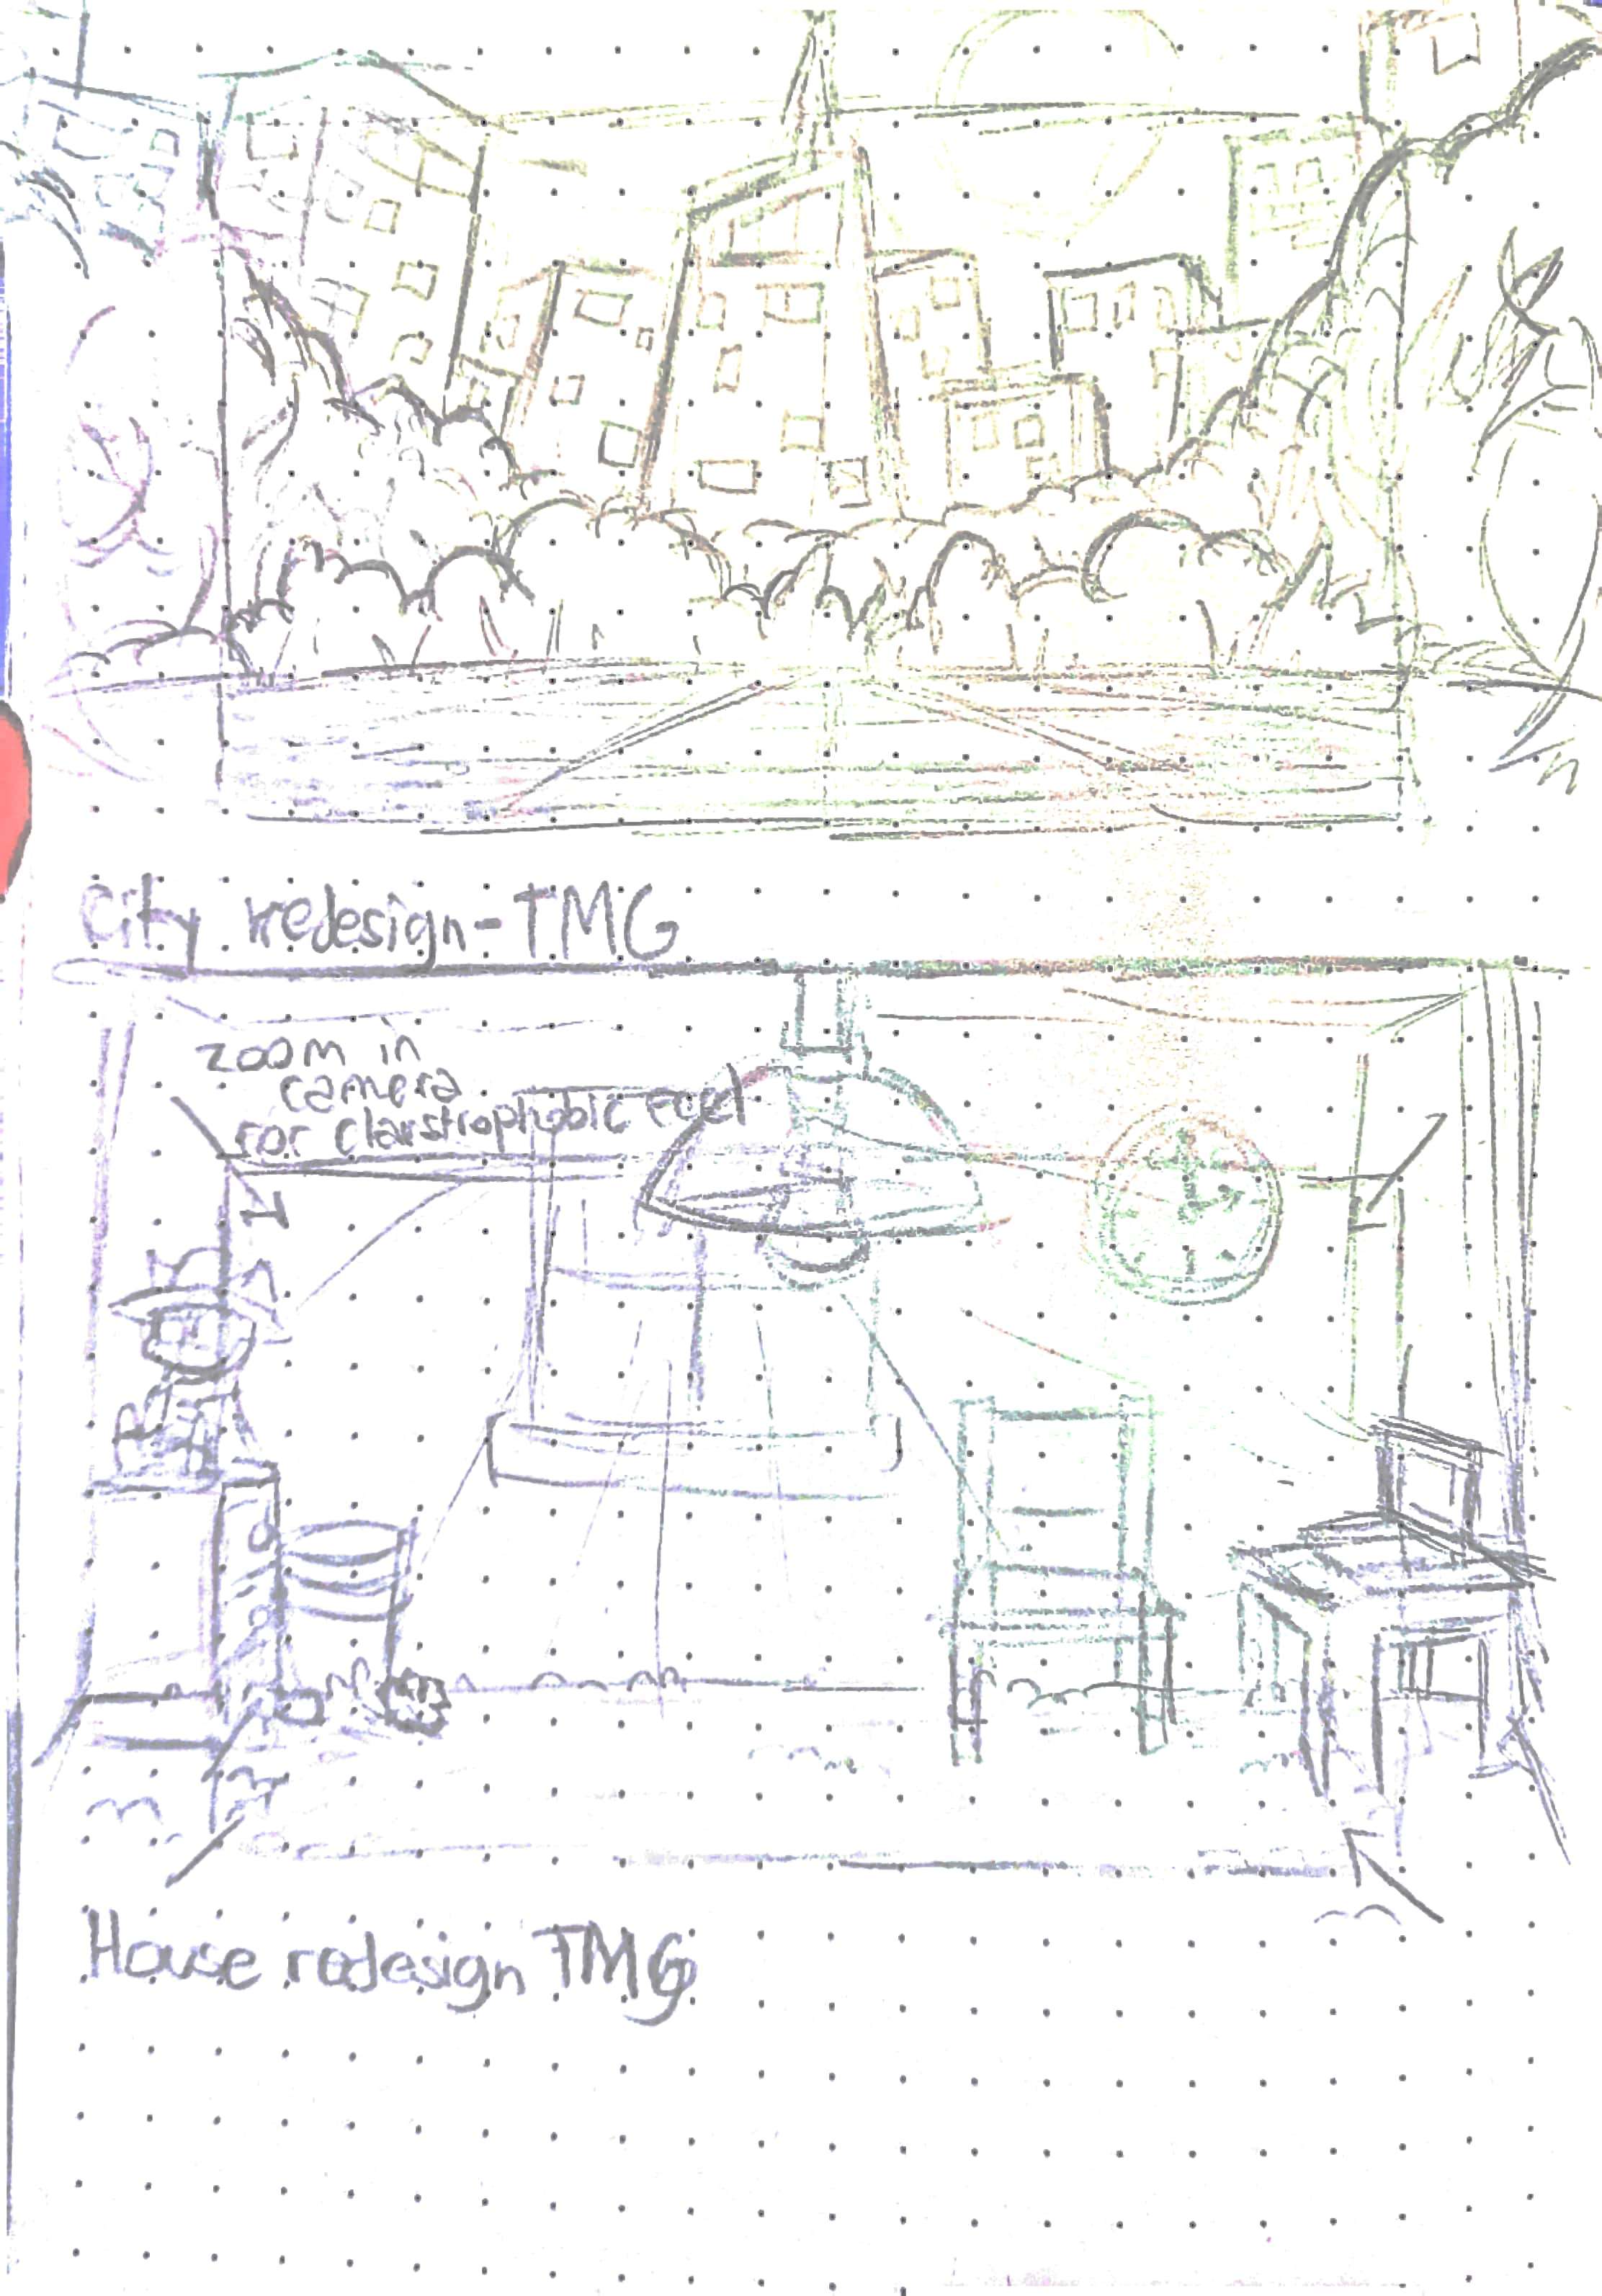 City redesign-TMG
zoom in
camera
for claustrophobic feel
House redesign TMG